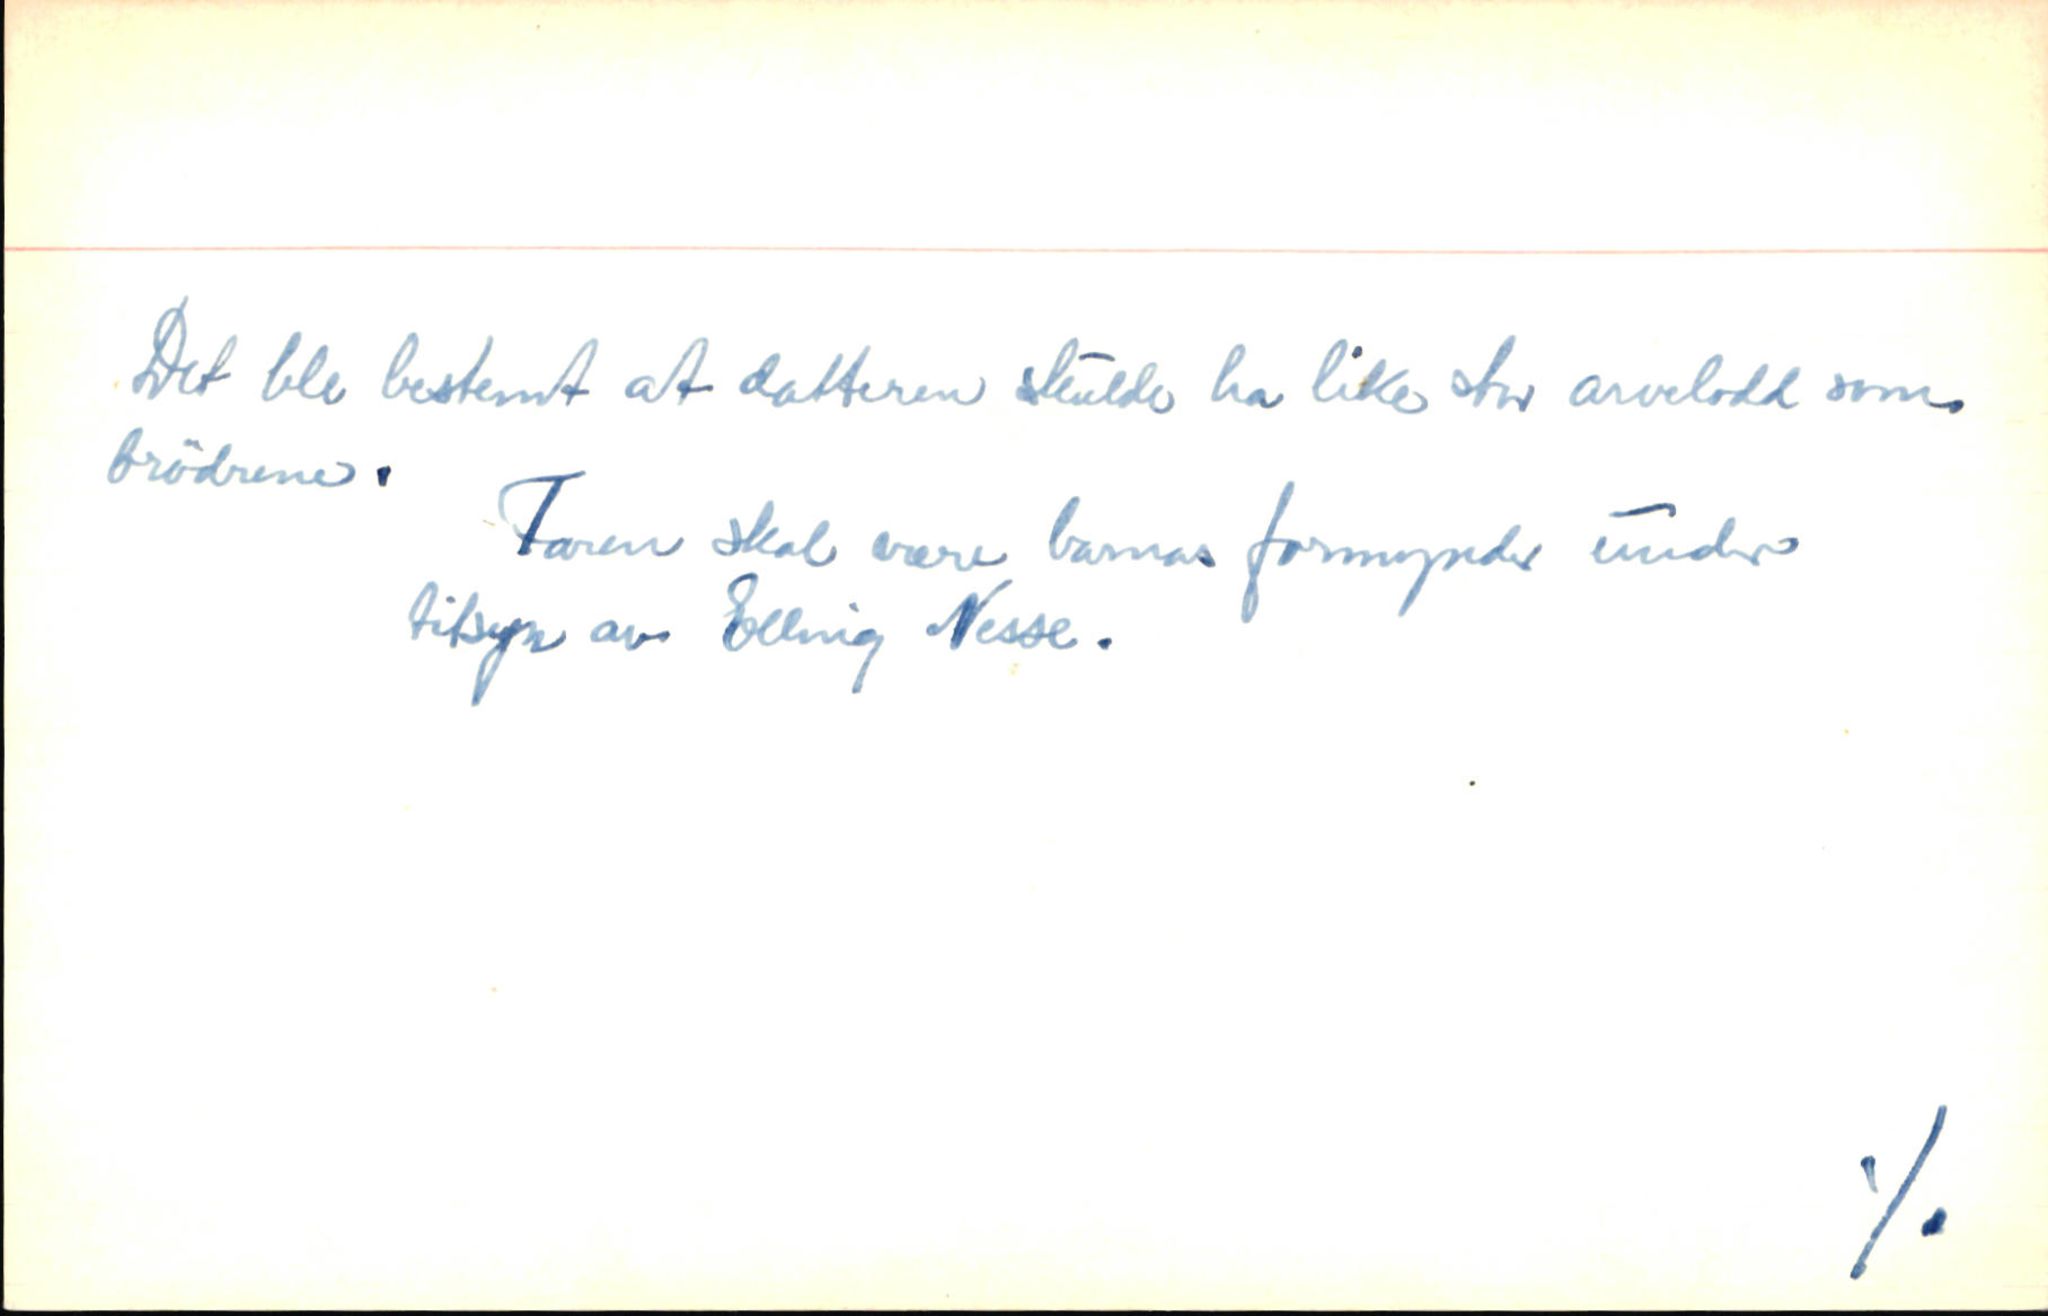 Det ble bestemt at datteren skulde ha like stor arvelodd som
brödrene.
Faren skal være barnas formynder under
tilsyn av Elling Nesse.
·/.